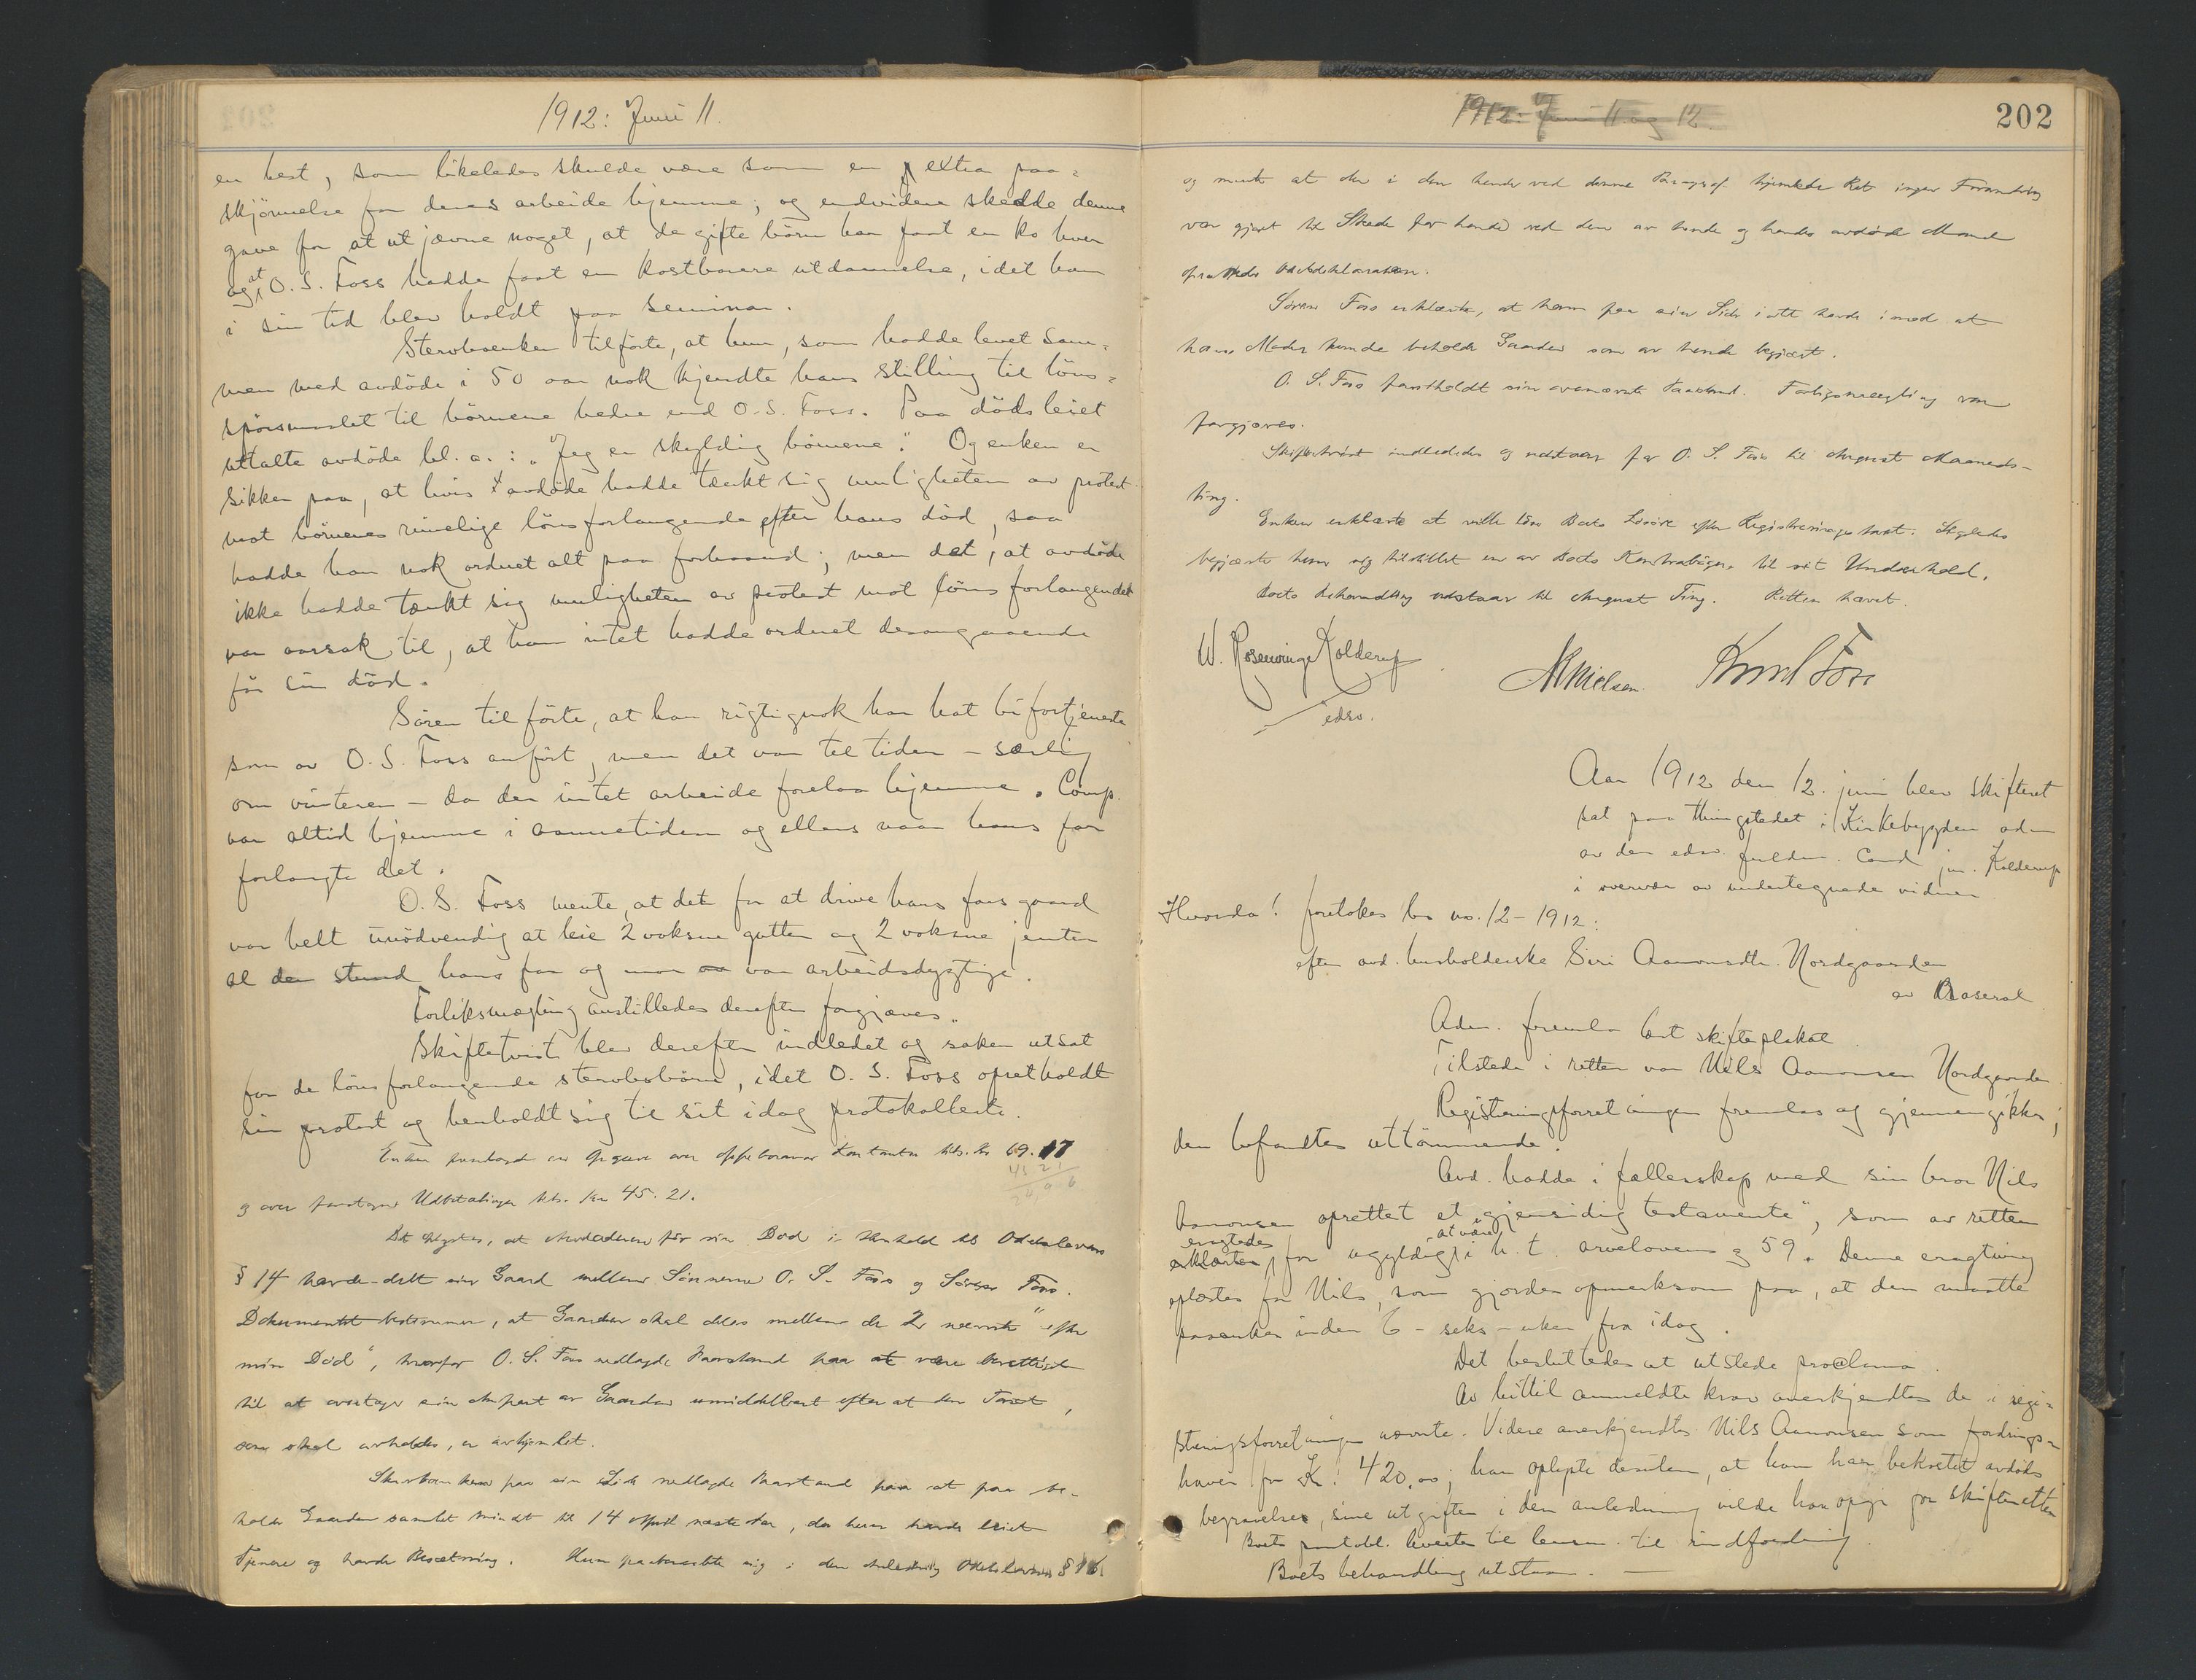 1912: Juni 11.
en hest, som likeledes skulde være som en extra paa=
skjønnelse for deres arbeide hjemme; og endvidere skedde denne
gave for at utjævne noget, at de gifte børn har faat en ko hver
og at O. S. Foss hadde faat en kostbarere utdannelse, idet han
i sin tid blev holdt paa seminar.
Stervboenken tilførte, at hun, som hadde levet sam=
men med avdøde i 50 aar nok kjendte hans stilling til løns=
spørsmaalet til børnene bedre end O. S. Foss. Paa dødsleiet
uttalte avdøde bl. a.: „Jeg er skyldig børnene". Og enken er
sikker paa, at hvis avdøde hadde tænkt sig muligheten av protest
mot børnenes rimelige lønsforlangende efter hans død, saa
hadde han nok ordnet alt paa forhaand; men det, at avdøde
ikke hadde tænkt sig muligheten av protest mot lønsforlangendet
var aarsak til, at han intet hadde ordnet desangaaende
før sin død.
Søren tilførte, at han rigtignok har hat bifortjeneste
som av O. S. Foss anført, men det var til tider – særlig
om vinteren – da der intet arbeide forelaa hjemme. Comp.
var altid hjemme i aannetiden og ellers naar hans far
forlangte det.
O. S. Foss mente, at det for at drive hans fars gaard
var helt unødvendig at leie 2 voksne gutter og 2 voksne jenter
al den stund hans far og mor var arbeidsdygtige.
Forliksmægling anstilledes derefter forgjæves.
Skiftetvist blev derefter indledet og saken utsat
for de lønsforlangende stervbobørn, idet O. S. Foss opretholdt
sin protest og henholdt sig til sit idag protokollerte.
Enken fremlagde en Opgave over oppebaarne Kontanter til. Kr 69.17
45 21
og over foretagne Udbetalinger til. Kr 45.21.
Det oplystes, at Avdøde før sin Død i Henhold til Odelslovens
§ 14 havde delt sin Gaard mellem Sønnerne O. S. Foss og Søren Foss.
Dokumentet bestemmer, at Gaarden skal deles mellem de 2 nævnte „efter
min Død", hvorfor O. S. Foss nedlagde Paastand paa at være berettiget
til at overtage sin Anpart av Gaarden umiddelbart efter at den Tvist,
som skal avholdes, er avhjemlet.
Stervboenken paa sin Side nedlagde Paastand paa at faa be-
holde Gaarden samlet mindst til 14 April næste Aar, da hun havde leiet
Tjenere og havde Besætning. Hun paaberaabte sig i den Anledning Odelslovens § 16
202
1912: Juni 11 og 12.
og mente at der i den hende ved denne Paragraf hjemlede Ret ingen Forandring
var gjort til Skade for hende ved den av hende og hendes avdøde Mand
oprettede Odelsdeklaration.
Søren Foss erklærte, at han paa sin Side intet havde imod at
hans Moder kunde beholde Gaarden som av hende begjært.
O. S. Foss fastholdt sin ovennævnte Paastand. Forligsmægling var
forgjæves.
Skiftetvist indlededes og udstaar for O. S. Foss til August Maaneds-
ting.
Enken erklærte at ville løse Boets Løsøre efter Registreringstaxt.
begjærte hun sig tilstillet en av Boets Kontrabøger til sit Underhold.
Boets Behandling udstaar til August Ting. Retten hævet.
W. Rosenvinge Kolderup
edsv.
Nielsen Knud Foss
Aar 1912 den 12. juni blev skifteret
sat paa thingstedet i Kirkebygden adm
av den edsv. fuldm. Cand jur. Kolderup
i overvær av undertegnede vidner
Hvorda! foretokes bo no. 12 – 1912:
efter avd. husholderske Siri Aanonsdtr. Nordgaarden
av Aaseral
Adm. fremla læst skifteplakat.
Tilstede i retten var Nils Aanonsen Nordgaarden.
Registeringsforretningen fremlas og gjennemgikkes;
den befandtes uttømmende.
Avd. hadde i fællerskap med sin bror Nils
Aanonsen oprettet et „gjensidig testamente", som av retten
eragtedes for at være ugyldig i h. t. arvelovens § 59. Denne eragtning
oplæstes for Nils, som gjordes opmerksom paa, at den maatte
paaankes inden 6 – seks – uker fra idag.
Det besluttedes at utstede proclama.
Av hittil anmeldte krav anerkjendtes de i regi=
streringsforretningen nævnte. Videre anerkjendtes Nils Aanonsen som fordrings=
haver for Kr: 420.00; han oplyste desuten, at han har bekostet avdødes
begravelse, sine utgifter i den anledning vilde han opgi for skifteretten
Boets levertes til lensm. til indfordring.
Boets behandling utstaar. —